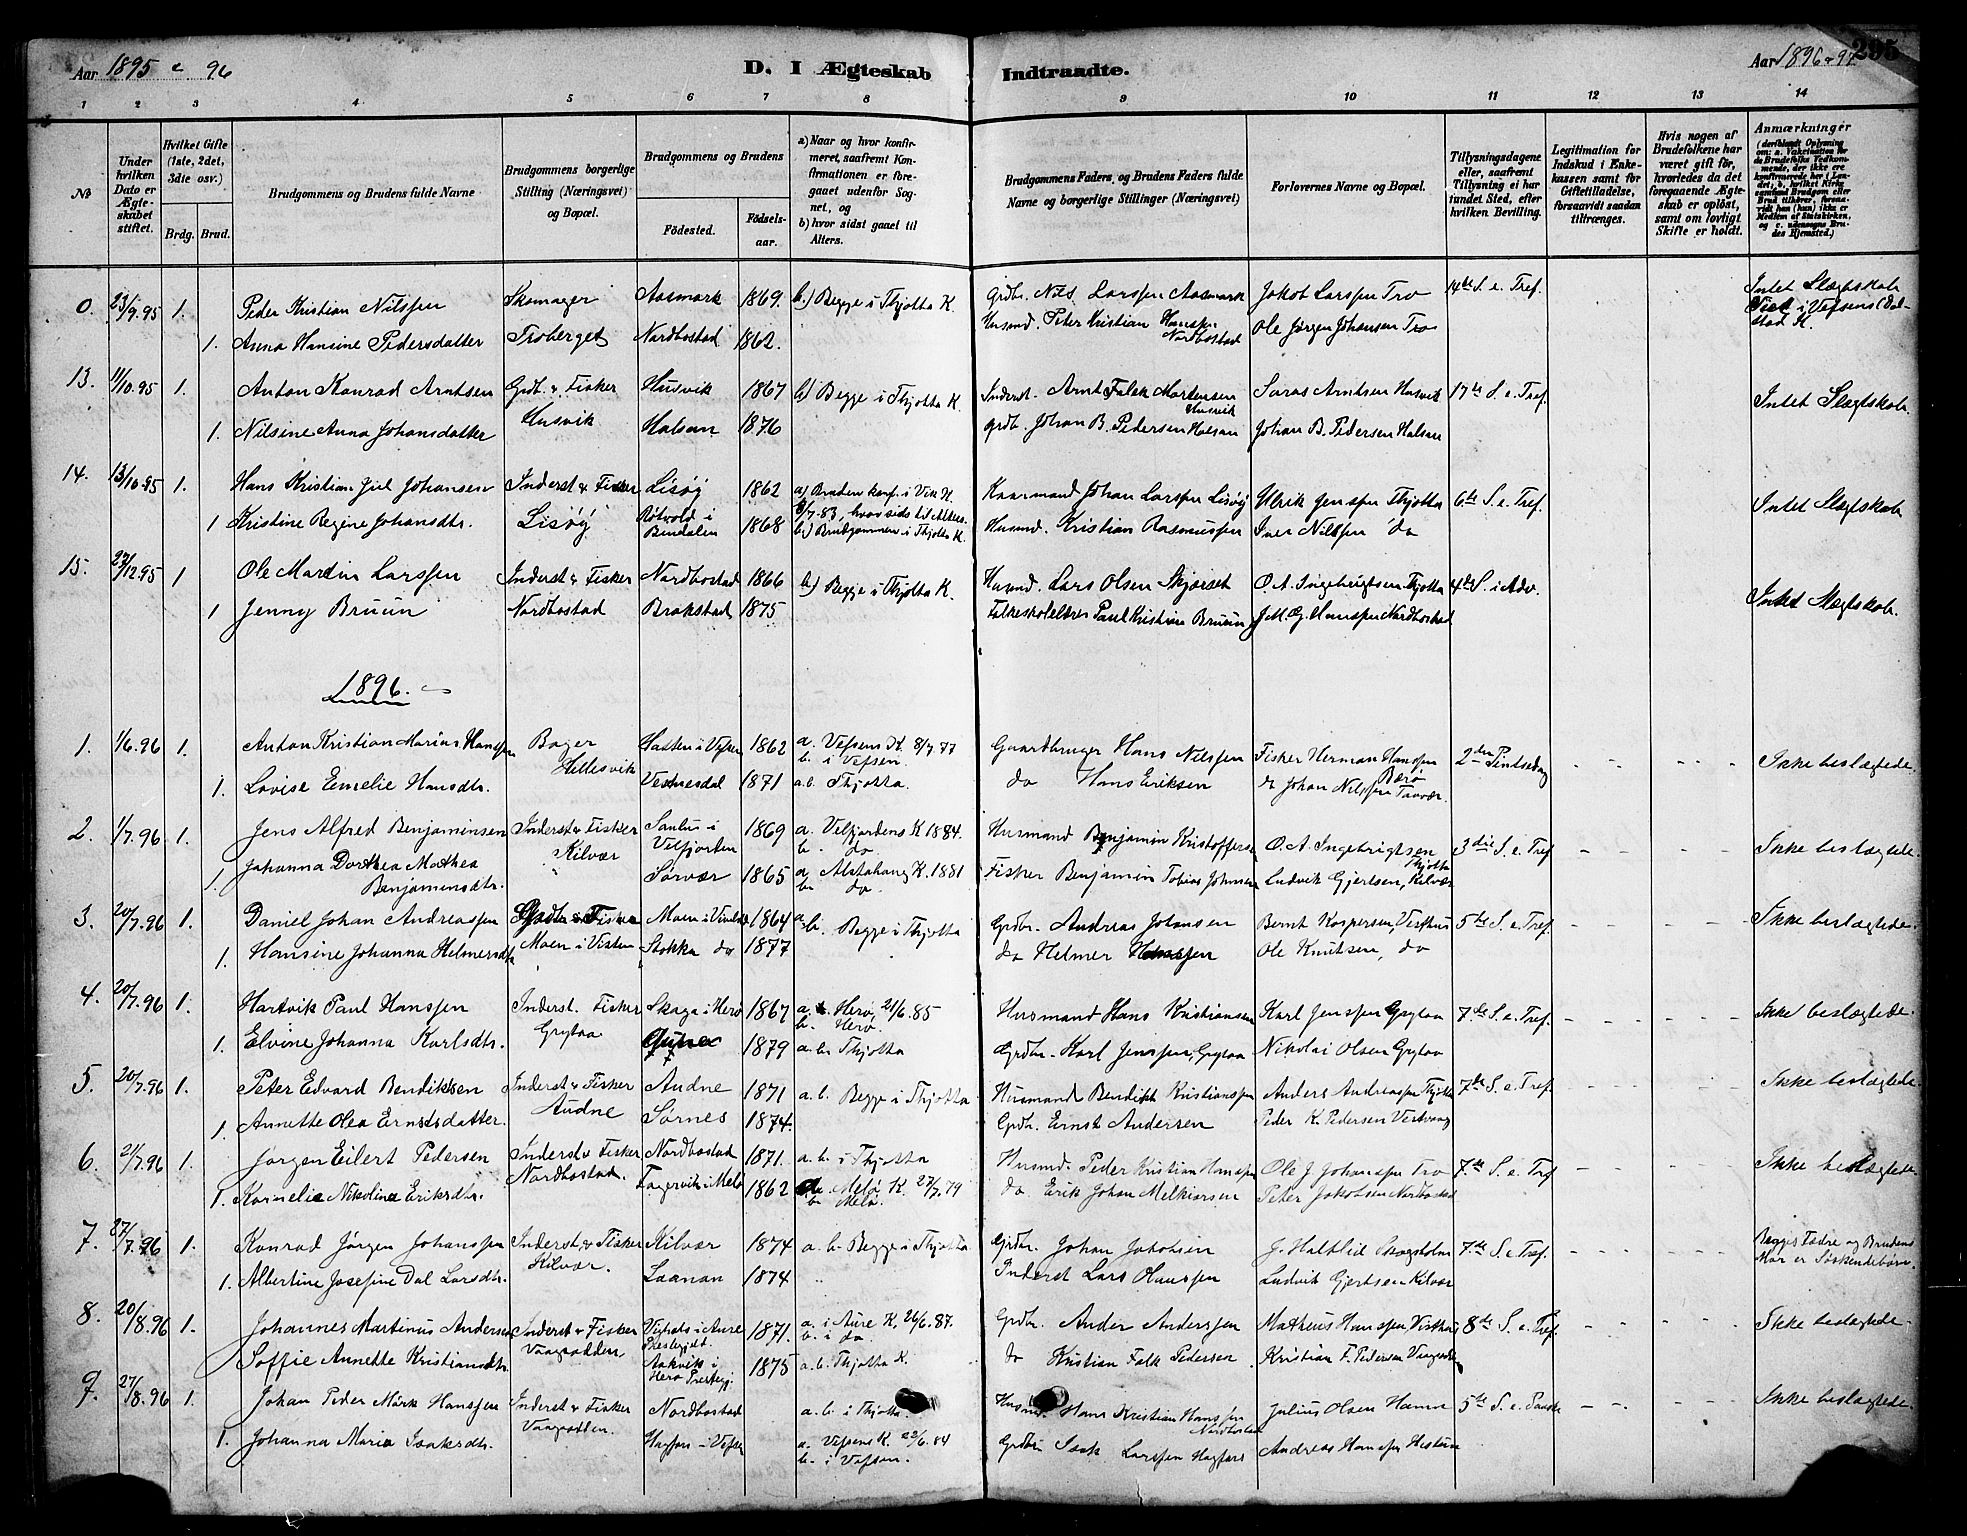 Aar 1895 & 96
D. I Ægteskab
Indtraadte.
Aar 1896 & 97
295
1 2 3 4 5 6 7 8 9 10 11 12 13 14
№
Under hvilken Dato er Ægteskabet stiftet.
Hvilket Gifte (1ste, 2det, 3die osv.)
Brdg. Brud.
Brudgommens og Brudens fulde Navne
Brudgommens borgerlige Stilling (Næringsvei) og Bopæl.
Brudgommens og Brudens
Fødested.
Fødselsaar.
a) Naar og hvor konfirmeret, saafremt Konfirmationen er foregaaet udenfor Sognet, og
b) hvor sidst gaaet til Alters.
Brudgommens Faders, og Brudens Faders fulde Navne og borgerlige Stillinger (Næringsvei)
Forlovernes Navne og Bopæl.
Tillysningsdagene eller, saafremt Tillysning ei har fundet Sted, efter hvilken Bevilling.
Legitimation for Indskud i Enkekassen samt for Giftetilladelse, forsaavidt saadan tiltrænges.
Hvis nogen af Brudefolkene har været gift før, hvorledes da det foregaaende Ægteskab er opløst, samt om lovligt Skifte er holdt.
Anmærkninger
23/9.95 1. Peder Kristian Nilssen Skomager Aasmark 1869. b.) Begge i Thjøtta K. Grdbr. Nils Larssen Aasmark Jakob Larssen Tro 14de S. e. Tref. Intet Slægtskab
1. Anna Hansine Pedersdatter Troberget Nordbostad 1862. Husmd. Peter Kristian Hanssen Nordbostad Ole Jørgen Johansen Tro
13. 11/10.95 1. Anton Konrad Arntsen Grdb. & Fisker Husvik 1867 b) Begge i Thjøtta K. Inderst. Arnt Falck Mortensen Husvik Arntsen Husvik 17de S. e. Tref. Intet Slægtskab
1. Nilsine Anna Johansdatter Husvik Halsan 1876 Grdb. Johan B. Pedersen Halsan Johan B. Pedersen Halsan
14. 13/10.95 1. Hans Kristian Juel Johansen Inderst & Fisker Lisøy 1862 a) Bruden konf. i Vik K. Johan Larssen Lisøy Ulrik Jenssen Thjøtta 6te S. e. Tref. Intet Slægtskab
1 Kristine Regine Johansdtr. Lisøy Røtvold i Bindalen 1868 b) Brudgommen i Thjøtta K. Husmd. Kristian Rasmussen Iver Nilssen do
15. 27/12.95 1 Ole Martin Larssen Inderst & Fisker Nordbostad 1866 b) Begge i Thjøtta K. Husmd. Lars Olsen O. A. Ingebrigtsen Thjøtta 4de S. i Adv. Intet Slægtskab.
1 Jenny Bruun Nordbostad Brakstad 1875 Folkeskolelærer Paul Kristian Bruun J. M. G. Hanssen Nordbostad
1896.
1. 1/6.96 1. Anton Kristian Marius Hanssen Bager Hatten i Vefsen 1862 a. Vefsens K. 8/7.77 b. i Vefsen. Gaardbruger Hans Nilssen Fisker Herman Hanssen Bærø 2den Pintsedag - - - - Ikke beslægtede.
1. Lovise Emelie Hansdtr. Hellesvik 1871 a.b. Thjøtta. do Hans Eriksen do Johan Nilssen
2. 1/7.96 1. Jens Alfred Benjaminsen Inderst & Fisker Velfjorden 1869 a. Velfjordens K 1884. b. do Husmand Benjamin Kristoffersen O. A. Ingebrigtsen Thjøtta 3die S. e. Tref - - - - Ikke beslægtede.
1. Johanna Dorthea Mathea Benjaminsdtr. Kilvær Sørvær 1865 a. Alstahaug K. 1881 b. do. Fisker Benjamin Tobias Johnsen Ludvik Gjertsen, Kilvær
3. 20/7.96 1. Daniel Johan Andreassen Grdbr & Fisker Moen i Visten 1864 a.b. Begge i Thjøtta Grdbr. Andreas Johansen Bernt Kaspersen, Visthus 5te S. e. Tref. - - - - Ikke beslægtede.
1. Hansine Johanna Helmersdtr Moen i Visten Stokka do 1877 do Helmer Hanssen Ole Knutsen, do
4. 20/7.96 1. Hartvik Paul Hanssen Inderst. Fisker Skaga i Herø 1867 a. Herø, 21/6.85 b. Herø. Husmand Hans Kristiansen Karl Jenssen Grytaa 7de S. e. Tref. - - - - Ikke beslægtede.
1. Elvine Johanna Karlsdtr. Grytaa 1879 a.b. Thjøtta Grdbr. Karl Jenssen, Grytaa Nikolai Olsen Grytaa
5. 20/7.96 1. Peter Edvard Bendiktsen Inderst & Fisker Audne 1871 a.b. Begge i Thjøtta Husmand Bendikt Kristianssen Anders Andreassen Thjøtta 7de S. e Tref. - - - - Ikke beslægtede.
1. Annette Olea Ernstsdatter. Audne Sørnes 1874. Grdbr. Ernst Andersen Peder K. Pedersen
6. 21/7.96 1. Jørgen Eilert Pedersen Inderst & Fisker Nordbostad 1871. a.b. i Thjøtta Husmd. Peder Kristian Hanssen Ole J. Johanssen Tro 7de S. e Tref - - - - Ikke beslægtede
1. Kornelie Nikolina Eriksdtr. Nordbostad. Fagervik i Melø 1862 Melø K. 27/7.79 b. Melø. do Erik Johan Melkiorsen Peter Jakobsen Nordbostad
7. 27/7.96 1. Konrad Jørgen Johanssen Inderst & Fisker Kilvær 1874 a.b. Begge i Thjøtta Grdbr. Johan Jakobsen J. Hatlelid Skogsholm 7de S. e. Tref. - - - - Begges Fædre og Brudens Mor er Søskendebørn.
1. Albertine Josefine Dal Larsdtr. Kilvær. Laanan 1874 Inderst Lars Olaussen Ludvik Gjertsen Kilvær
8. 20/8.96 1. Johannes Martinus Andersen Inderst & Fisker i Aure Prestegjel. 1871. a. i Aure K, 21/6.87. b. i do. Grdbr. Ander Anderssen Matheus Hanssen, Visthus 8de S. e. Tref - - - - Ikke beslægtede.
1. Soffie Annette Kristiansdtr. Vaagsodden Aakvik i Herø Prestegj. 1875 a.b. Thjøtta K. do Kristian Falk Pedersen Kristian F. Pedersen Vaagsodden
9. 27/8.96 1. Johan Peder Mørk Hanssen Inderst & Fisker Nordbostad a.b. i Thjøtta. Husmd. Hans Kristian Hanssen Nordbostad Julius Olsen Hamn 5te S. e. Paaske - - - - Ikke beslægtede.
1. Johanna Maria Isaksdtr. Vaagsodden. i Vefsen a. Vefsens K. 22/6.84 b. i Vefsen. Grdbr Isak Larssen Andreas Hanssen